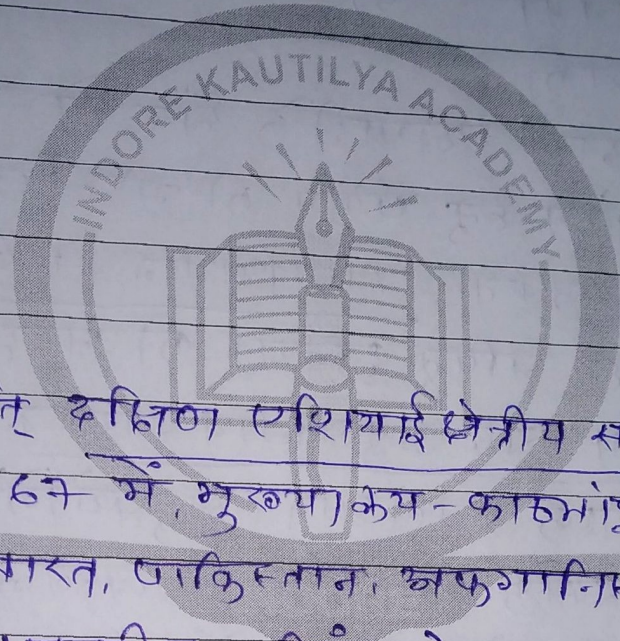 INDORE KAUTILYA ACADEMY
त् दक्षिण एशियाई क्षेत्रीय स
67 में, मुख्यालय - काठमांडू
भारत, पाकिस्तान, अफगानिस